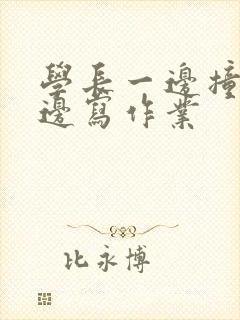 學長一邊撞
邊寫作業
比永博